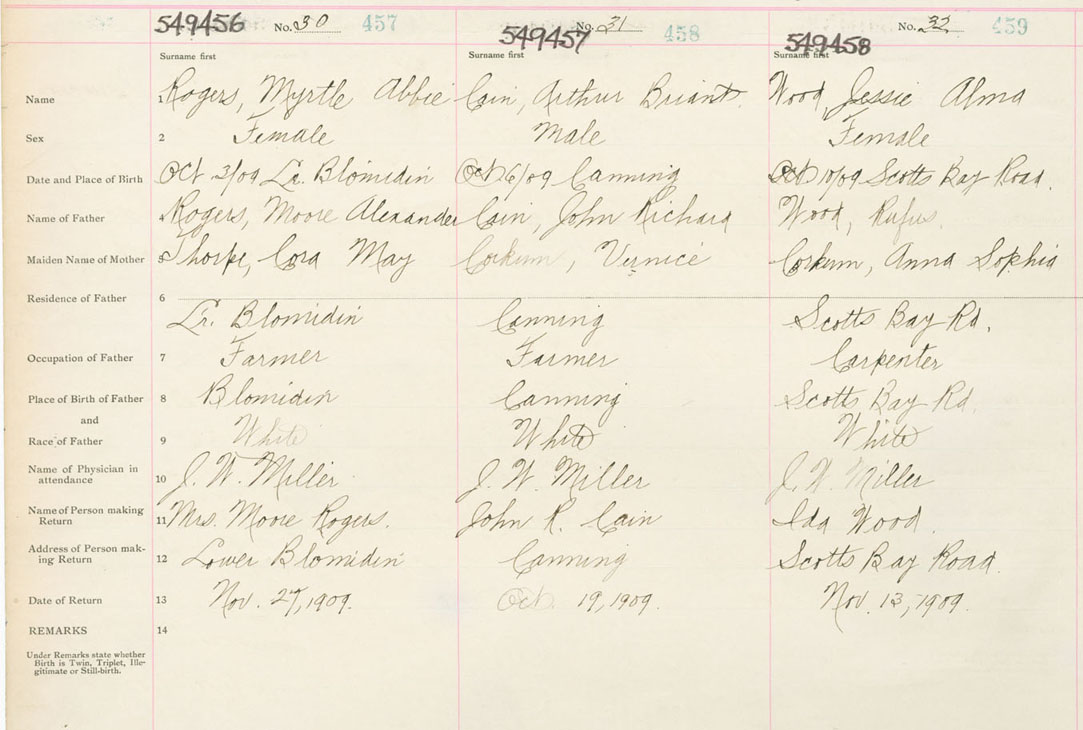 549456 No. 30 457 549457 No. 31 458 549458 No. 32 459
Surname first Surname first Surname first
Name 1 Rogers, Myrtle Abbie Cain, Arthur Briant. Wood, Jessie Alma
Sex 2 Female Male Female
Date and Place of Birth Oct 3/09 Lr. Blomidin Oct 6/09 Canning Oct 10/09 Scotts Bay Road.
Name of Father Rogers, Moore Alexander Cain, John Richard Wood, Rufus.
Maiden Name of Mother 5 Thorpe, Cora May Corkum, Vernice Corkum, Anna Sophia
Residence of Father 6
Lr. Blomidin Canning Scotts Bay Rd.
Occupation of Father 7 Farmer Farmer Carpenter
Place of Birth of Father 8 Blomidin Canning Scotts Bay Rd.
and
Race of Father 9 White White White
Name of Physician in
attendance 10 J. W. Miller J. W. Miller J. W. Miller
Name of Person making
Return 11 Mrs. Moore Rogers. John R. Cain Ida Wood.
Address of Person mak-
ing Return 12 Lower Blomidin Canning Scotts Bay Road.
Date of Return 13 Nov. 27, 1909. Oct. 19, 1909. Nov. 13, 1909.
REMARKS 14
Under Remarks state whether
Birth is Twin, Triplet, Ille-
gitimate or Still-birth.